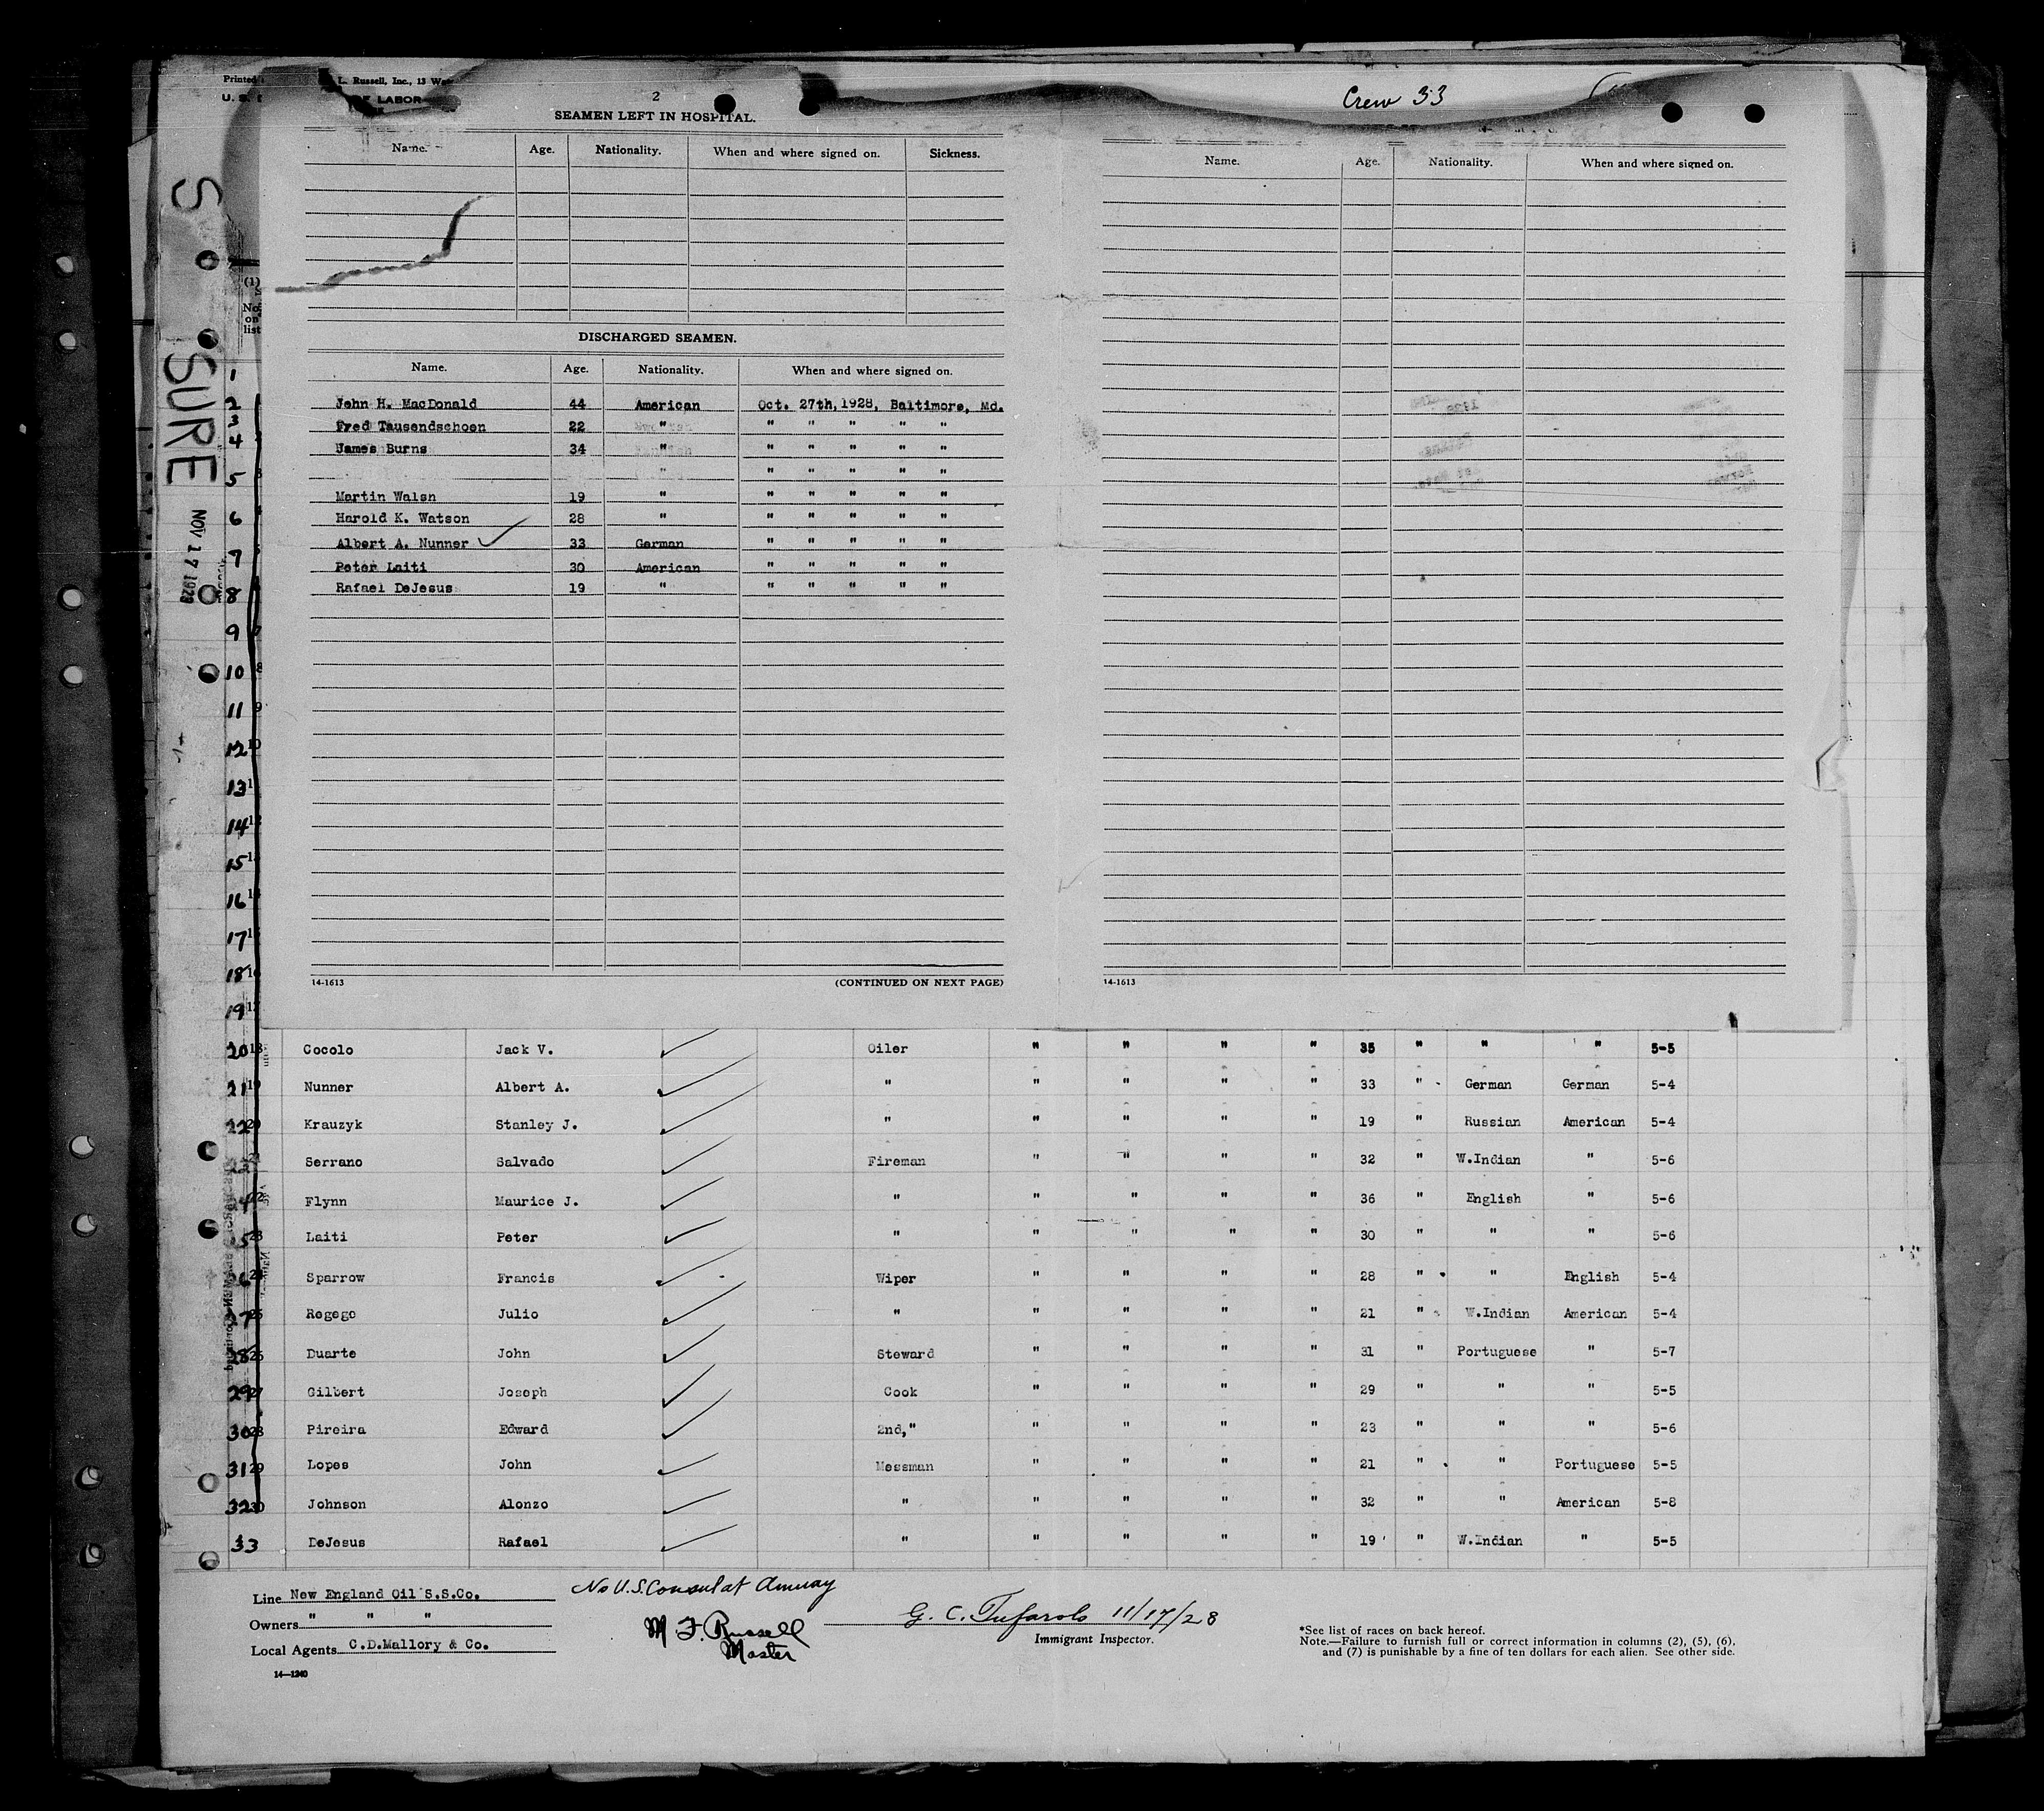 Printed
L. Russell, Inc., 13
U. S.
OF LABOR
2
SEAMEN LEFT IN HOSPITAL.
Name. Age. Nationality. When and where signed on. Sickness.
DISCHARGED SEAMEN.
Name. Age. Nationality. When and where signed on.
John H. MacDonald 44 American Oct. 27th, 1928, Baltimore, Md.
Fred Tausendschoen 22 " " " " " "
James Burns 34 " " " " " "
" " " " " "
Martin Walsh 19 " " " " " "
Harold K. Watson 28 " " " " " "
Albert A. Nunner 33 German " " " " "
Peter Laiti 30 American " " " " "
Rafael DeJesus 19 " " " " " "
14-1613 (CONTINUED ON NEXT PAGE)
Crew 33
Name. Age. Nationality. When and where signed on.
14-1613
S
SURE
NOV 17 1928
(1)
No.
on
list
1
2
3
4
5
6
7
8
9
10 8
11 9
12 10
13
14 12
15 13
16
17
18 16
19 17
20 18 Cocolo Jack V. Oiler " " " " 35 " " " 5-5
21 19 Nunner Albert A. " " " " " 33 " German German 5-4
22 20 Krauzyk Stanley J. " " " " " 19 " Russian American 5-4
Serrano Salvado Fireman " " " " 32 " W.Indian " 5-6
Flynn Maurice J. " " " " " 36 " English " 5-6
Laiti Peter " " " " " 30 " " " 5-6
Sparrow Francis Wiper " " " " 28 " " English 5-4
Regego Julio " " " " " 21 " W.Indian American 5-4
28 26 Duarte John Steward " " " " 31 " Portuguese " 5-7
29 27 Gilbert Joseph Cook " " " " 29 " " " 5-5
30 28 Pireira Edward 2nd," " " " " 23 " " " 5-6
31 29 Lopes John Messman " " " " 21 " " Portuguese 5-5
32 30 Johnson Alonzo " " " " " 32 " " American 5-8
33 DeJesus Rafael " " " " " 19 " W.Indian " 5-5
Line New England Oil S.S.Co.
Owners " " "
Local Agents C.D.Mallory & Co.
14—1240
No U.S. Consul at Amuay
M F. Russell
Master
G. C. Tufarolo 11/17/28
Immigrant Inspector.
*See list of races on back hereof.
Note.—Failure to furnish full or correct information in columns (2), (5), (6),
and (7) is punishable by a fine of ten dollars for each alien. See other side.